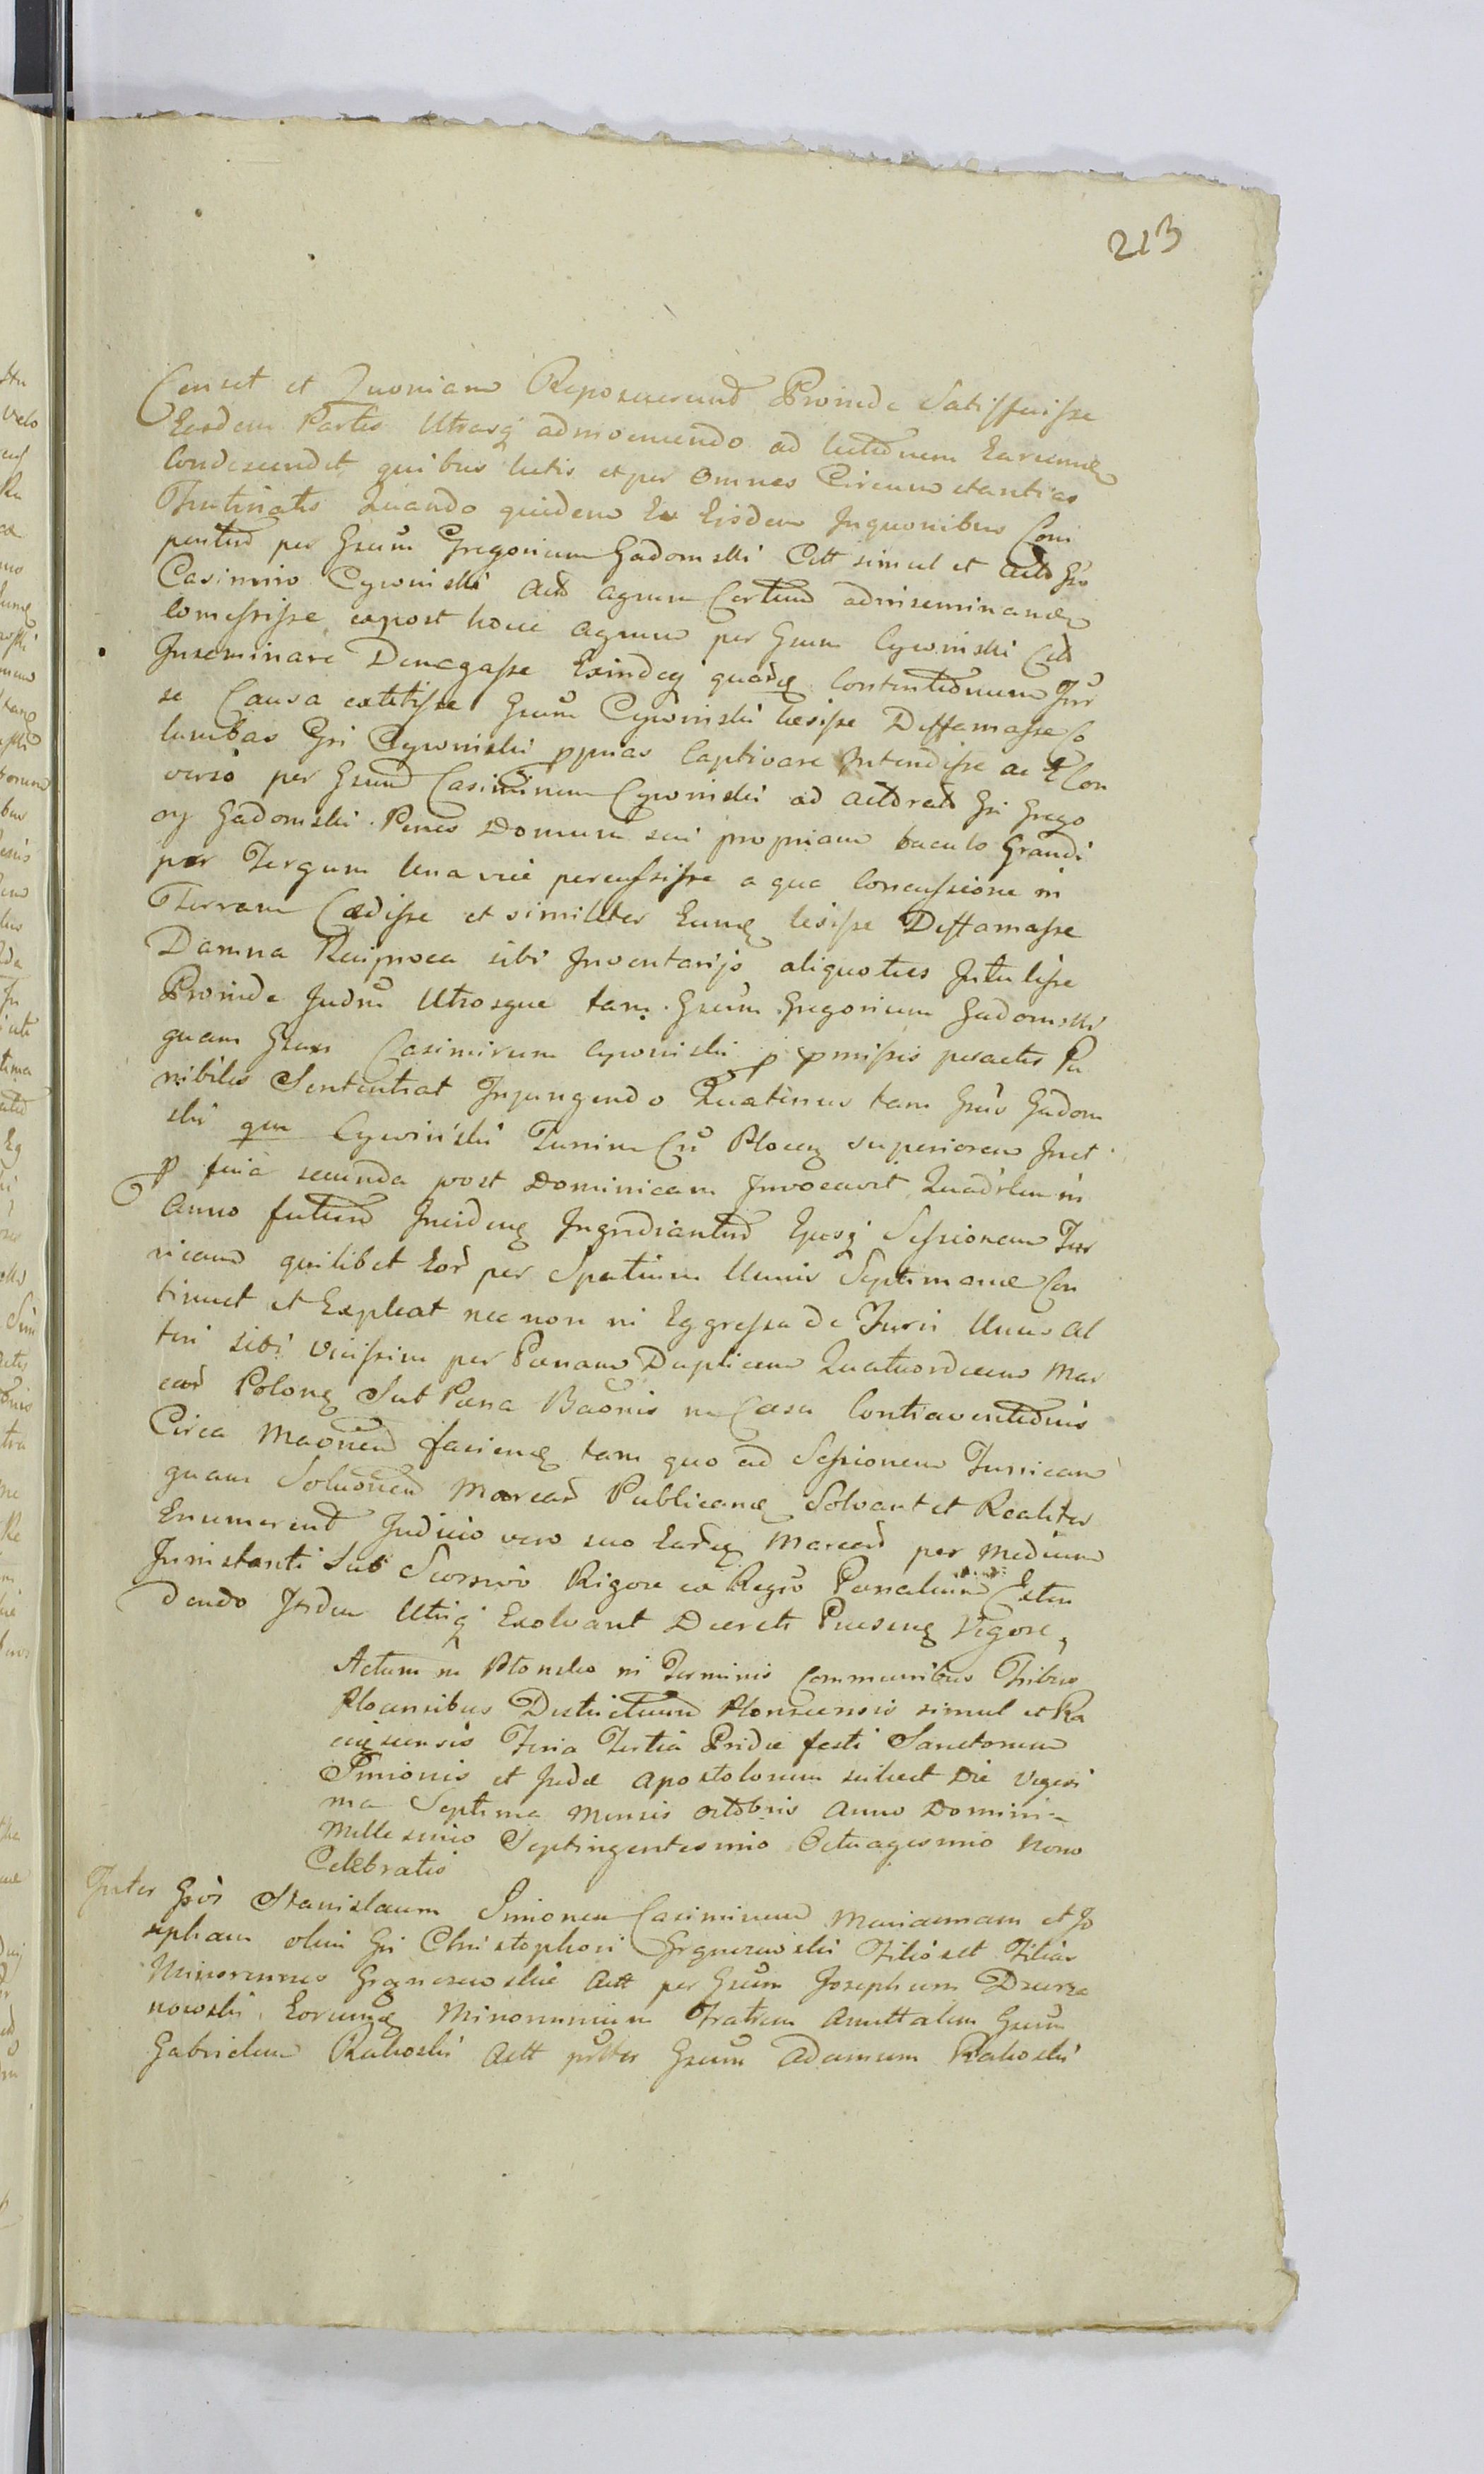 213
Censet et Quoniam Reposuerund Proinde Satisfuisse
Easdem Partes Utrasq admovendo ad lectionem Earumq
Condescendit quibus lectis et per Omnes Circumstantias
Trutinatis Quando quidem Ex Eisdem Inquonibus Com
pertud per Gsum Gregorium Gadomski Citt simul et Actd Gso
Casimiro Cywinski Actd agrum Certum adinseminandq
Comisisse expost hunc agrum per Gsum Cywinski Citd
Inseminare Denegasse Exindeq quarq Contentionum Jur
se Causa extitisse Gsum Cywinski Læsisse Deffamasse Co
lumbas Gsi Cywinski pprias Captivare Intendisse ac E Con
verso per Gsum Casimirum Cywinski ad actoratd Gsi Grego
ry Gadomski Penes Domum sui propriam baculo Grandi
per Tergum Una vice percussisse a qua Concussione in
Terram Cædisse et similiter Eumq Lesisse Deffamasse
Damna Reciproca sibi Inventarijs aliquoties Intulisse
Proinde Judm Utrosque tam Gsum Gregorium Gadomski
quam Gsum Casimirum Cywinski p pmissis peractis Pu
nibiles Sententiat Injungendo Quatinus tam Gsus Gadom
ski qm Cywinski Turrim Cu Plocen superiorem Juct
p feria secunda post Dominicam Invocavit Quadrlem in
Anno futuro Incidenq Ingrediantur Ipsasq Sessionem Tur
ricam quilibet Eor per Spatium Unius Septimanæ Con
tinuet et Expleat nec non in Eggressu de Turri Unus Al
teri sibi Vicissim per Pœnam Duplicem Quatuordecem Mar
car Polonq Sub Pœna Baonis in Casu Contraventionis
Circa Maonem facienq tam quo ad Sessionem Turricam
quam Soluonem Marcar Publicanq Solvant et Realiter
Enumerent Judicio vero suo Eadeq Marcar per medium
Juristanti Sub Scorsivo Rigore ex Regro Pœnalium Exten
dendo Itidem Utriq Exolvant Decreti Præsenq Vigore,
Actum in Płonsko in Terminis Communibus Tribus
Plocensibus Districtuum Plonscensis simul et Ra
ciąscensis Feria Tertia Pridie festi Sanctorum
Simonis et Judæ Apostolorum scilicet Die Vigesi
ma Septima Mensis octobris Anno Domini
Millesimo Septingentesimo Octuagesimo Nono
Celebratis
Inter Gsos Stanislaum Simonem Casimirum Mariannam et Jo
sepham olim Gsi Christophori Filios et Filias
Minorennes Actt per Gsum Josephum
nowski Eorumq Minorennium Fratrem Amittalem Gsum
Gabrielem Rakoski Actt Gsum Adamum Rakoski